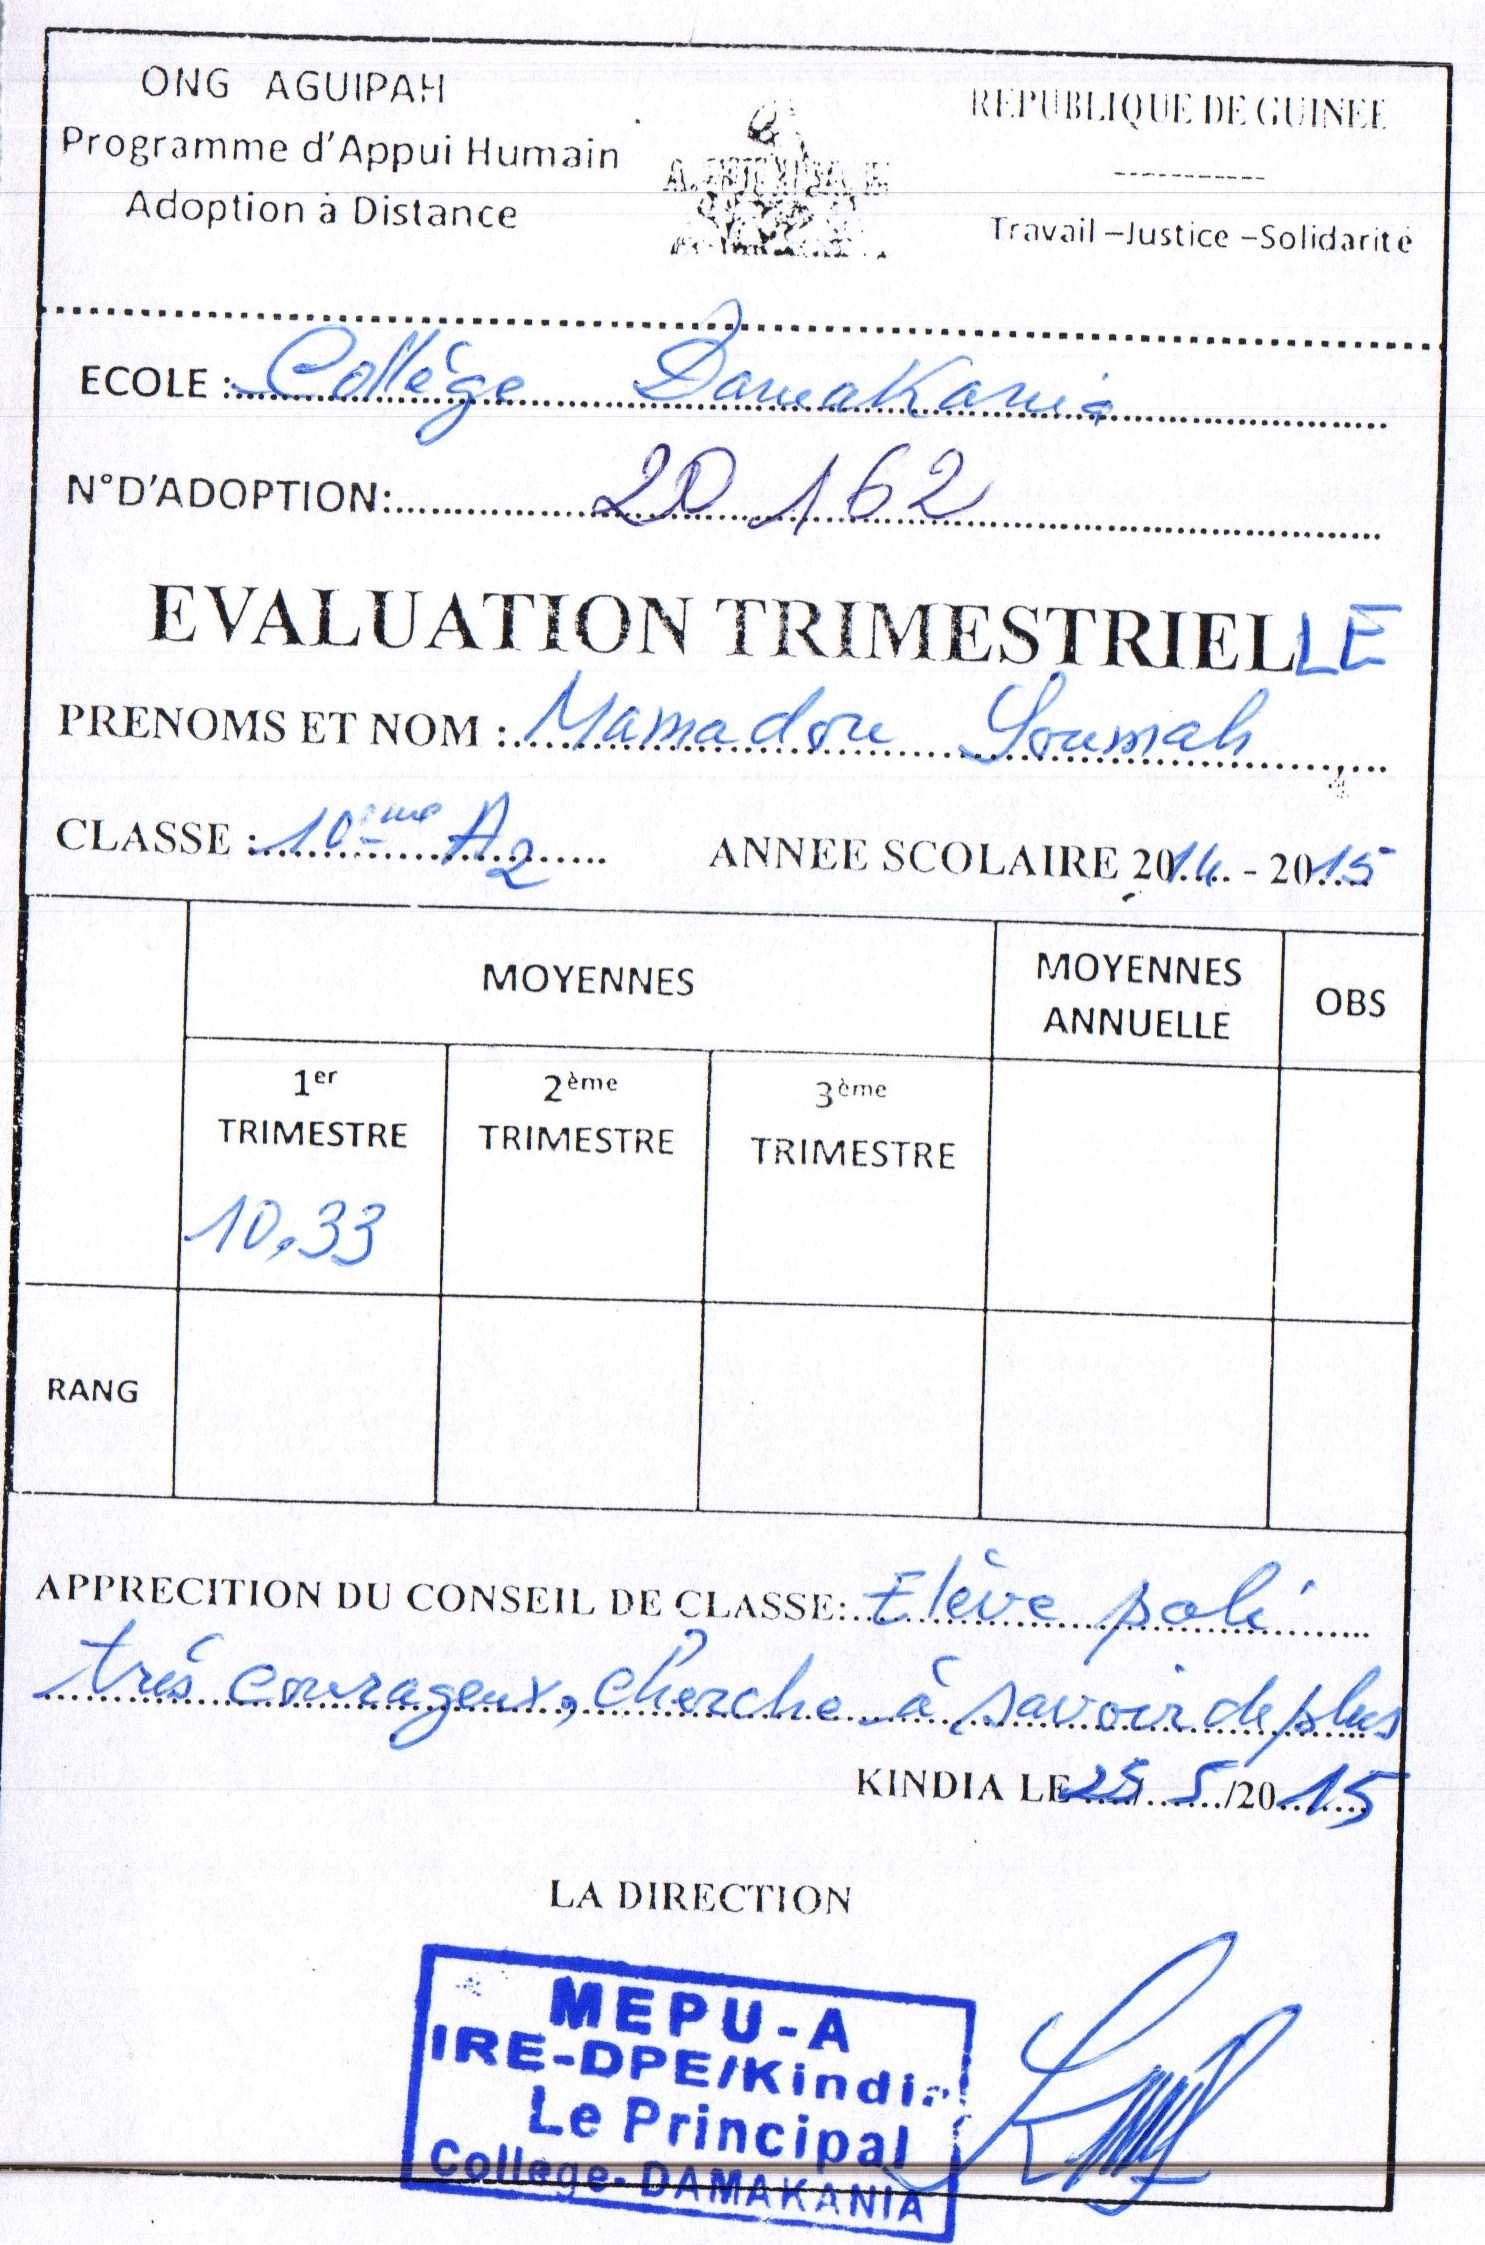 ONG AGUIPAH
Programme d'Appui Humain
Adoption à Distance
REPUBLIQUE DE GUINEE
-----------
Travail –Justice –Solidarité
ECOLE : Collège Damakania
N°D'ADOPTION: 20 162
EVALUATION TRIMESTRIELLE
PRENOMS ET NOM : Mamadou Soumah
CLASSE : 10ème A2 ANNEE SCOLAIRE 2014 - 2015
MOYENNES
MOYENNES
ANNUELLE
OBS
1er
TRIMESTRE
2ème
TRIMESTRE
3ème
TRIMESTRE
10,33
RANG
APPRECITION DU CONSEIL DE CLASSE: Elève poli
très courageux, cherche à savoir de plus
KINDIA LE 25/5/2015
LA DIRECTION
MEPU-A
IRE-DPE/Kindia
Le Principal
College-DAMAKANIA